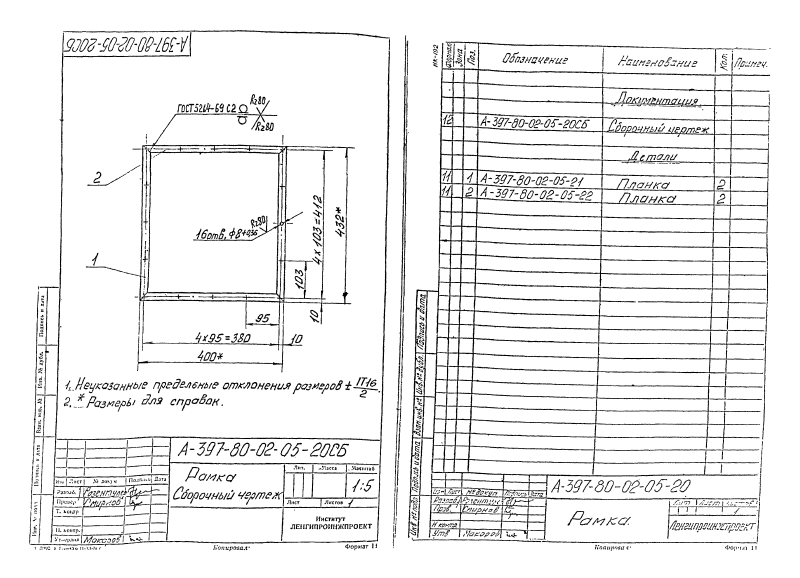 А-397-80-02-05-20СБ
ГОСТ 5264-69 С2
Rz80
Rz80
2
1
16отв. ф8+0,36
Rz80
103
4х103=412
432*
10
95
4х95=380
10
400*
1. Неуказанные предельные отклонения размеров ± П16/2.
2. * Размеры для справок.
Подпись и дата
Инв. № дубл.
Взам. инв. №
Подпись и дата
Инв. № подл
А-397-80-02-05-20СБ
Рамка
Сборочный чертеж
Лит.
Масса
Масштаб
1:5
Изм
Лист
№ докум
Подпись
Дата
Разраб.
Розентулер
Провер
Смирнов
Т. контр
Н. контр.
Утвердил
Макаров
Лист
Листов 1
Институт
ЛЕНГИПРОИНЖПРОЕКТ
Копировал:
Формат 11
Формат
Зона
Поз.
Обозначение
Наименование
Кол.
Примеч.
Документация
12 А-397-80-02-05-20СБ Сборочный чертеж
Детали
11 1 А-397-80-02-05-21 Планка 2
11 2 А-397-80-02-05-22 Планка 2
Подпись и дата
Инв.№ дубл.
Взам.инв.№
Подпись и дата
Инв.№ подл
А-397-80-02-05-20
Изм
Лист
№ докум
Подпись
Дата
Разраб
Пров.
Смирнов
Н контр
Утв
Макаров
Рамка.
Лит
Лист
Листов
1
Ленгипроинжпроект
Копировал:
Формат 11